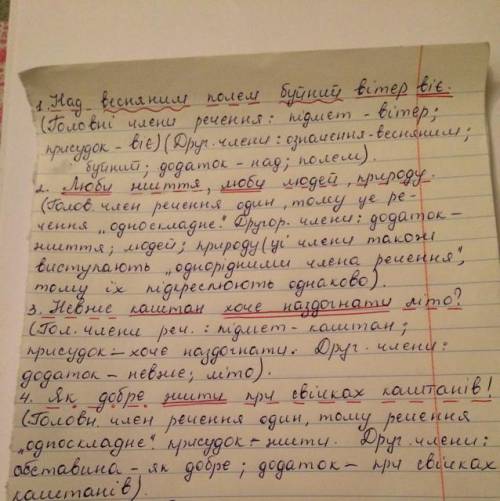 1. Над весняним полем буйний вітер віє.
(Головні члени речення: підмет - вітер;
присудок - віє) (Друг. члени: означення - весняним;
буйний; додаток - над; полем).
2. Люби життя, любу людей, природу.
(Голов. член речення один, тому це ре-
чення „односкладне". Другор. члени: додаток -
життя; людей; природу (ці члени також
виступають „однорідними члена речення",
тому їх підкреслюють однаково).
3. Невже каштан хоче наздогнати літо?
(Гол. члени реч.: підмет - каштан;
присудок - хоче наздогнати. Друг. члени:
додаток - невже; літо).
4. Як добре жити при свічках каштанів!
(Головн. член речення один, тому речення
„односкладне". присудок - жити. Друг. члени:
обставина - як добре; додаток - при свічках
каштанів).